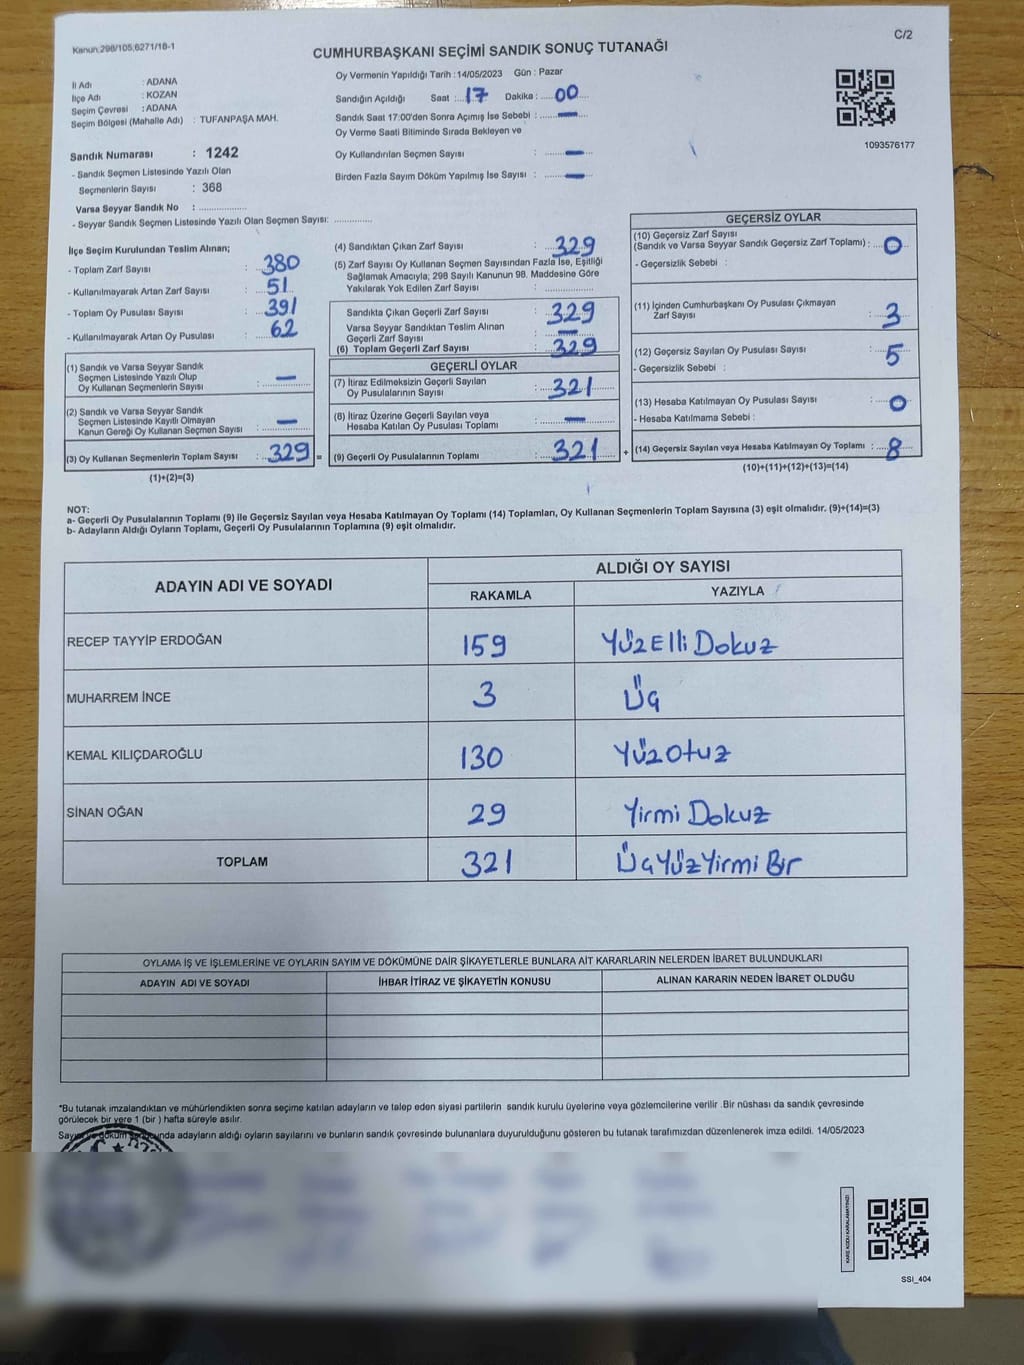 Kanun:298/105;6271/18-1
C/2
CUMHURBAŞKANI SEÇİMİ SANDIK SONUÇ TUTANAĞI
İl Adı : ADANA
İlçe Adı : KOZAN
Seçim Çevresi : ADANA
Seçim Bölgesi (Mahalle Adı) : TUFANPAŞA MAH.
Sandık Numarası : 1242
- Sandık Seçmen Listesinde Yazılı Olan
Seçmenlerin Sayısı : 368
Varsa Seyyar Sandık No : ....................
- Seyyar Sandık Seçmen Listesinde Yazılı Olan Seçmen Sayısı: ................
Oy Vermenin Yapıldığı Tarih :14/05/2023 Gün : Pazar
Sandığın Açıldığı Saat : 17 Dakika : 00
Sandık Saat 17:00'den Sonra Açımış İse Sebebi : —
Oy Verme Saati Bitiminde Sırada Bekleyen ve
Oy Kullandırılan Seçmen Sayısı : —
Birden Fazla Sayım Döküm Yapılmış İse Sayısı : —
1093576177
İlçe Seçim Kurulundan Teslim Alınan;
- Toplam Zarf Sayısı : 380
- Kullanılmayarak Artan Zarf Sayısı : 51
- Toplam Oy Pusulası Sayısı : 391
- Kullanılmayarak Artan Oy Pusulası : 62
(1) Sandık ve Varsa Seyyar Sandık
Seçmen Listesinde Yazılı Olup
Oy Kullanan Seçmenlerin Sayısı : —
(2) Sandık ve Varsa Seyyar Sandık
Seçmen Listesinde Kayıtlı Olmayan
Kanun Gereği Oy Kullanan Seçmen Sayısı : —
(3) Oy Kullanan Seçmenlerin Toplam Sayısı : 329 =
(1)+(2)=(3)
(4) Sandıktan Çıkan Zarf Sayısı : 329
(5) Zarf Sayısı Oy Kullanan Seçmen Sayısından Fazla İse, Eşitliği
Sağlamak Amacıyla; 298 Sayılı Kanunun 98. Maddesine Göre
Yakılarak Yok Edilen Zarf Sayısı : ................
Sandıkta Çıkan Geçerli Zarf Sayısı : 329
Varsa Seyyar Sandıktan Teslim Alınan
Geçerli Zarf Sayısı : —
(6) Toplam Geçerli Zarf Sayısı : 329
GEÇERLİ OYLAR
(7) İtiraz Edilmeksizin Geçerli Sayılan
Oy Pusulalarının Sayısı : 321
(8) İtiraz Üzerine Geçerli Sayılan veya
Hesaba Katılan Oy Pusulası Toplamı : —
(9) Geçerli Oy Pusulalarının Toplamı : 321 +
GEÇERSİZ OYLAR
(10) Geçersiz Zarf Sayısı
(Sandık ve Varsa Seyyar Sandık Geçersiz Zarf Toplamı) : 0
- Geçersizlik Sebebi :
(11) İçinden Cumhurbaşkanı Oy Pusulası Çıkmayan
Zarf Sayısı : 3
(12) Geçersiz Sayılan Oy Pusulası Sayısı : 5
- Geçersizlik Sebebi :
(13) Hesaba Katılmayan Oy Pusulası Sayısı : 0
- Hesaba Katılmama Sebebi :
(14) Geçersiz Sayılan veya Hesaba Katılmayan Oy Toplamı : 8
(10)+(11)+(12)+(13)=(14)
NOT:
a- Geçerli Oy Pusulalarının Toplamı (9) ile Geçersiz Sayılan veya Hesaba Katılmayan Oy Toplamı (14) Toplamları, Oy Kullanan Seçmenlerin Toplam Sayısına (3) eşit olmalıdır. (9)+(14)=(3)
b- Adayların Aldığı Oyların Toplamı, Geçerli Oy Pusulalarının Toplamına (9) eşit olmalıdır.
ADAYIN ADI VE SOYADI
ALDIĞI OY SAYISI
RAKAMLA YAZIYLA
RECEP TAYYİP ERDOĞAN 159 YüzElli Dokuz
MUHARREM İNCE 3 Üç
KEMAL KILIÇDAROĞLU 130 YüzOtuz
SİNAN OĞAN 29 Yirmi Dokuz
TOPLAM 321 ÜçYüzYirmi Bir
OYLAMA İŞ VE İŞLEMLERİNE VE OYLARIN SAYIM VE DÖKÜMÜNE DAİR ŞİKAYETLERLE BUNLARA AİT KARARLARIN NELERDEN İBARET BULUNDUKLARI
ADAYIN ADI VE SOYADI İHBAR İTİRAZ VE ŞİKAYETİN KONUSU ALINAN KARARIN NEDEN İBARET OLDUĞU
*Bu tutanak imzalandıktan ve mühürlendikten sonra seçime katılan adayların ve talep eden siyasi partilerin sandık kurulu üyelerine veya gözlemcilerine verilir .Bir nüshası da sandık çevresinde
görülecek bir yere 1 (bir ) hafta süreyle asılır.
Sayım ve döküm sonucunda adayların aldığı oyların sayılarını ve bunların sandık çevresinde bulunanlara duyurulduğunu gösteren bu tutanak tarafımızdan düzenlenerek imza edildi. 14/05/2023
KARE KODU KARALAMAYINIZ!
SSI_404